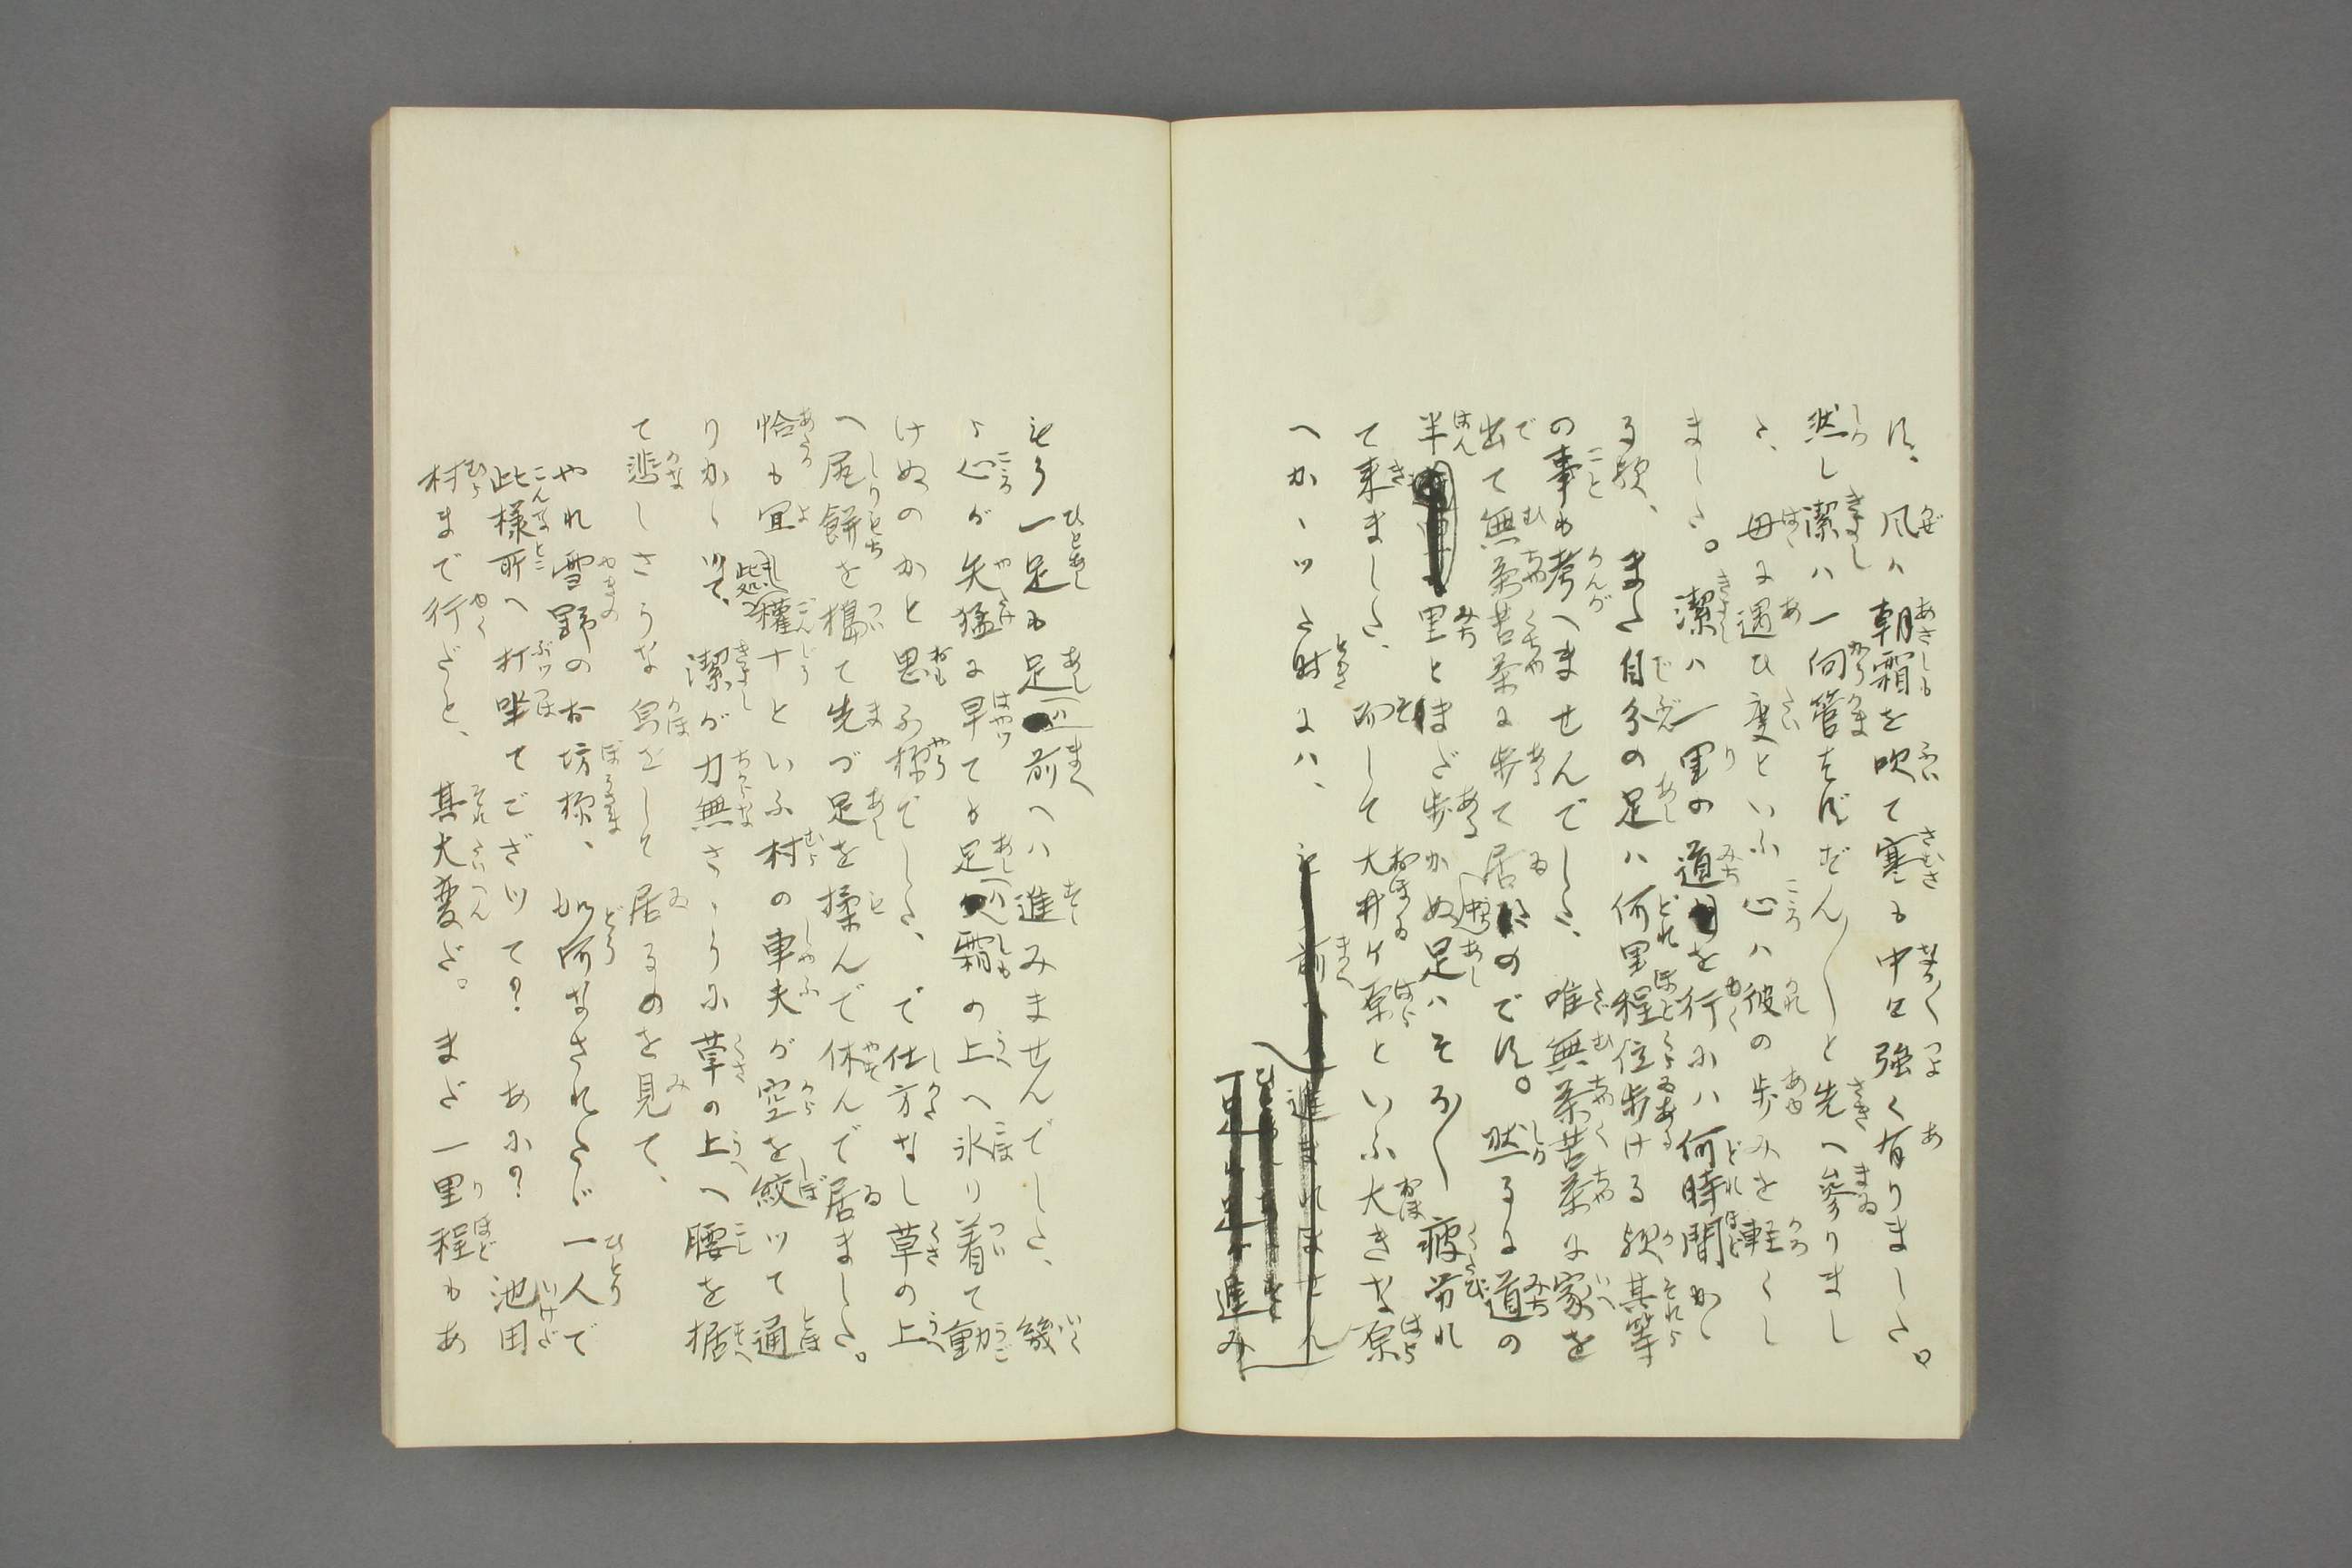 す、風ハ朝霜を吹て寒も中々強く有りました。
然し潔ハ一向管まずずん〳〵と先へ參りまし
た、母に遇ひ度といふ心ハ彼の歩みを軽くし
ました。潔ハ一里の道を行にハ何時間かゝ
る歟、また自分の足ハ何里程位歩ける歟其等
の事も考へませんでした、唯無茶苦茶に家を
出て無茶苦茶に歩て居たのです。然るに道の
半里とまだ歩かぬ中足ハそろ〳〵疲労れ
て来ました、而して大井ケ原といふ大きな原
へかゝツた時にハ、
もう一足も足が前へハ進みませんでした、幾
ら心が矢猛に早ても足ハ霜の上へ氷り着て動
けぬのかと思ふ様でした、で仕方なし草の上
へ尻餅を搗て先づ足を揉んで休んで居ました。
恰も宜し此処へ權十といふ村の車夫が空を絞ツて通
りかゝツて、潔が力無さゝうに草の上へ腰を据
て悲しさうな㒵をして居るのを見て、
やれ雪野のお坊様、如何なされたゞ一人で
此様所へ打坐てござツて？　あに？　池田
村まで行だと、其大変だ。まだ一里程もあ